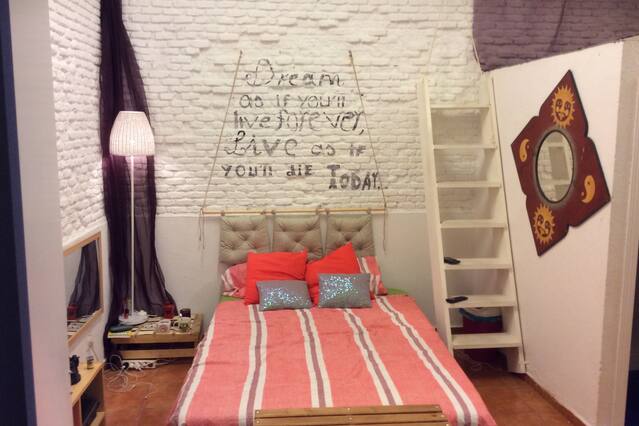 Dream
as if you'll
live forever,
Live as if
you'll die TODAY..